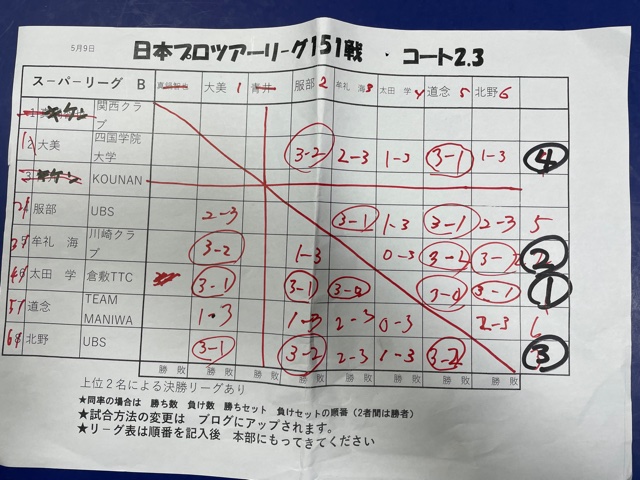 5月9日
日本プロツアーリーグ151戦 ・ コート2.3
スーパーリーグ B 大美 1 青井 服部 2 牟礼 海 3 太田 学 4 道念 5 北野 6
キケン 関西クラブ
1 2 大美 四国学院大学 3-2 2-3 1-3 3-1 1-3 4
3 キケン KOUNAN
2 服部 UBS 2-3 3-1 1-3 3-1 2-3 5
3 牟礼 海 川崎クラブ 3-2 1-3 0-3 3-2 2
4 太田 学 倉敷TTC 3-1 3-1 3-0 3-0 3-1 1
5 道念 TEAM MANIWA 1-3 1-3 2-3 0-3 2-3
6 北野 UBS 3-1 3-2 2-3 1-3 3-2 3
勝 敗 勝 敗 勝 敗 勝 敗 勝 敗 勝 敗 勝 敗 勝 敗
上位2名による決勝リーグあり
★同率の場合は 勝ち数 負け数 勝ちセット 負けセットの順番(2者間は勝者)
★試合方法の変更は ブログにアップされます。
★リーグ表は順番を記入後 本部にもってきてください